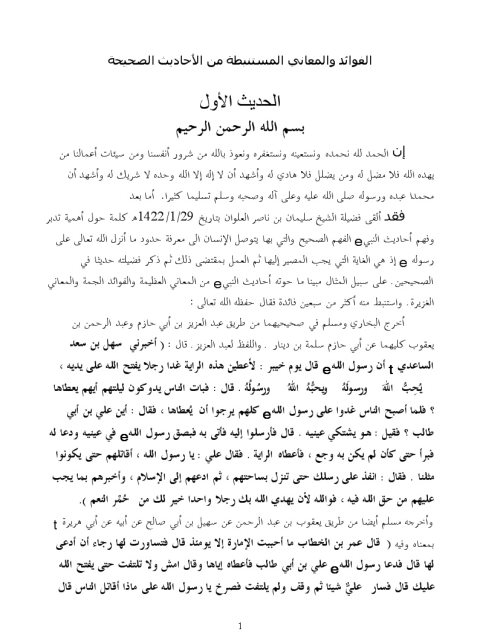 الفوائد والمعاني المستنبطة من الأحاديث الصحيحة
الحديث الأول
بسم الله الرحمن الرحيم
إن الحمد لله نحمده ونستعينه ونستغفره ونعوذ بالله من شرور أنفسنا ومن سيئات أعمالنا من
يهده الله فلا مضل له ومن يضلل فلا هادي له وأشهد أن لا إله إلا الله وحده لا شريك له وأشهد أن
محمدا عبده ورسوله صلى الله عليه وعلى آله وصحبه وسلم تسليما كثيرا. أما بعد
فقد ألقى فضيلة الشيخ سليمان بن ناصر العلوان بتاريخ 1422/1/29هـ كلمة حول أهمية تدبر
وفهم أحاديث النبي e الفهم الصحيح والتي بها يتوصل الإنسان الى معرفة حدود ما أنزل الله تعالى على
رسوله e إذ هي الغاية التي يجب المصير إليها ثم العمل بمقتضى ذلك ثم ذكر فضيلته حديثا في
الصحيحين. على سبيل المثال مبينا ما حوته أحاديث النبي e من المعاني العظيمة والفوائد الجمة والمعاني
الغزيرة. واستنبط منه أكثر من سبعين فائدة فقال حفظه الله تعالى :
أخرج البخاري ومسلم في صحيحيهما من طريق عبد العزيز بن أبي حازم وعبد الرحمن بن
يعقوب كليهما عن أبي حازم سلمة بن دينار . واللفظ لعبد العزيز. قال : ( أخبرني سهل بن سعد
الساعدي t أن رسول الله e قال يوم خيبر : لأعطين هذه الراية غدا رجلا يفتح الله على يديه ،
يُحِبُّ اللهَ ورسولَهُ ويحبُّهُ اللهُ ورسُولُهُ . قال : فبات الناس يدوكون ليلتهم أيهم يعطاها
؟ فلما أصبح الناس غدوا على رسول الله e كلهم يرجوا أن يُعطاها ، فقال : أين علي بن أبي
طالب ؟ فقيل : هو يشتكي عينيه . قال فأرسلوا إليه فأتى به فبصق رسول الله e في عينيه ودعا له
فبرأ حتى كأن لم يكن به وجع ، فأعطاه الراية . فقال علي : يا رسول الله ، أقاتلهم حتى يكونوا
مثلنا . فقال : انفذ على رسلك حتى تنزل بساحتهم ، ثم ادعهم إلى الإسلام ، وأخبرهم بما يجب
عليهم من حق الله فيه ، فوالله لأن يهدي الله بك رجلا واحدا خير لك من حُمْر النعم ).
وأخرجه مسلم أيضا من طريق يعقوب بن عبد الرحمن عن سهيل بن أبي صالح عن أبيه عن أبي هريرة t
بمعناه وفيه ( قال عمر بن الخطاب ما أحببت الإمارة إلا يومئذ قال فتساورت لها رجاء أن أدعى
لها قال فدعا رسول الله e علي بن أبي طالب فأعطاه إياها وقال امش ولا تلتفت حتى يفتح الله
عليك قال فسار عليٌّ شيئا ثم وقف ولم يلتفت فصرخ يا رسول الله على ماذا أقاتل الناس قال
1